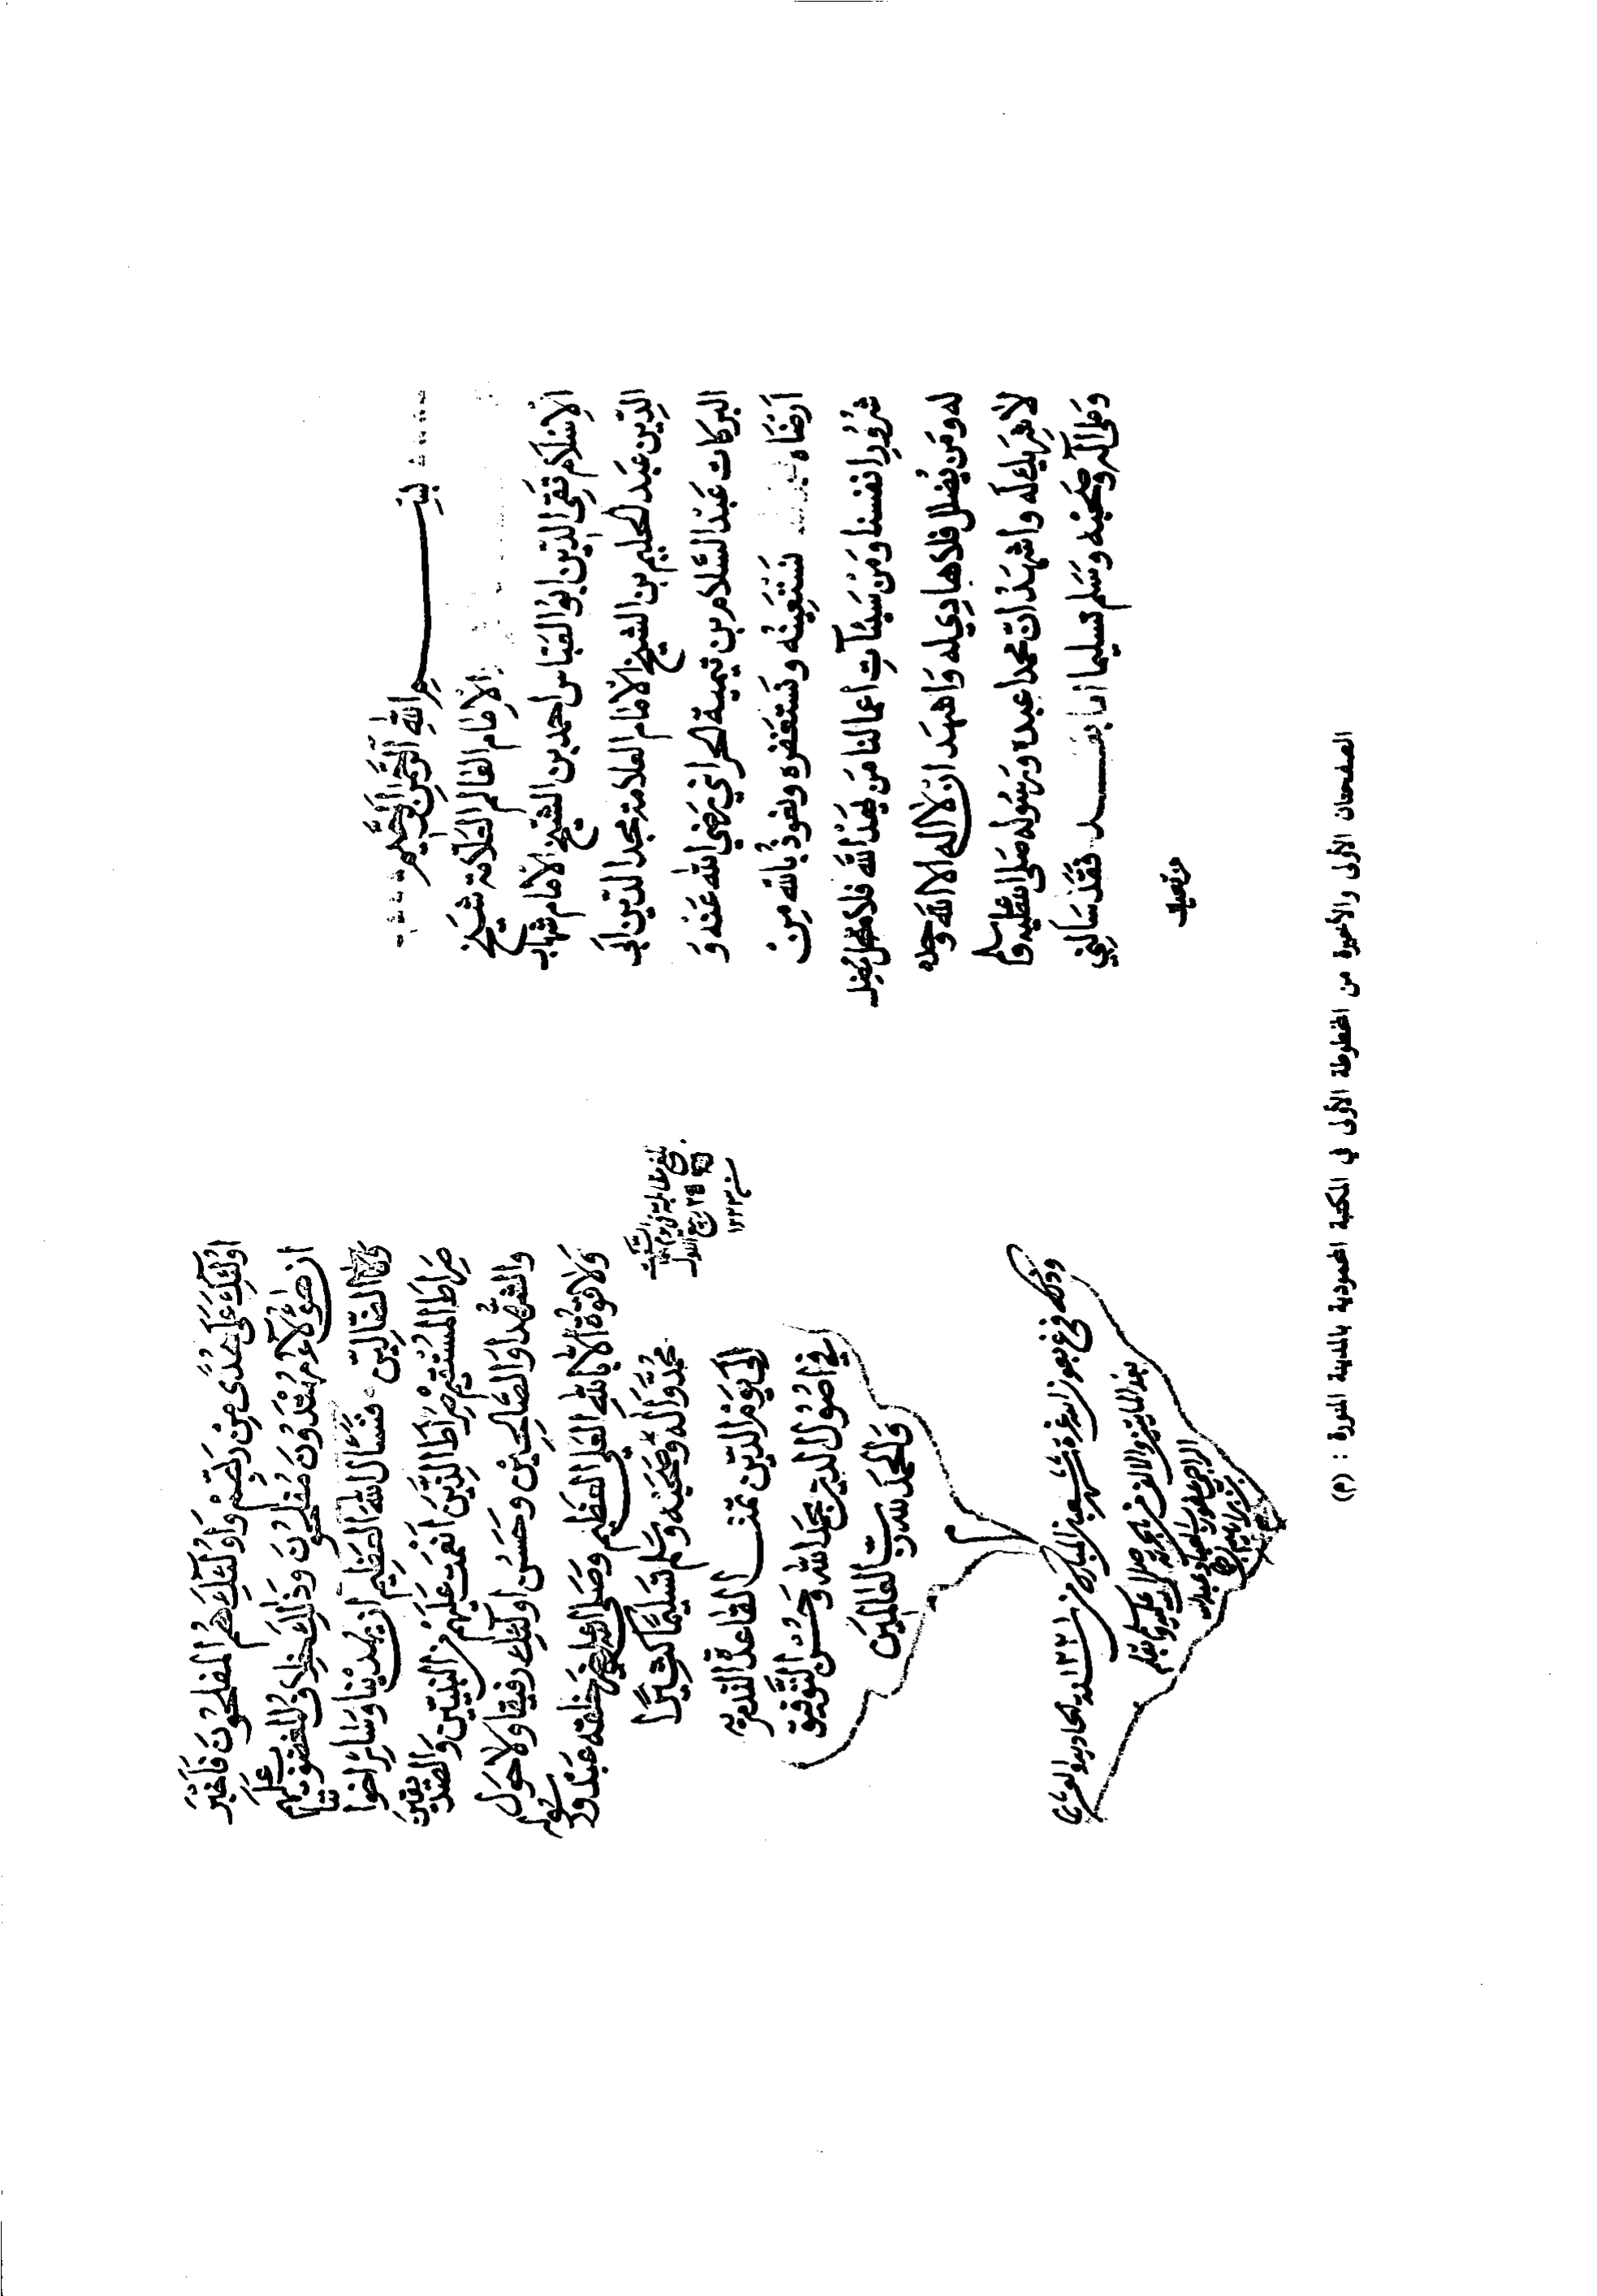 بسم الله الرحمن الرحيم
الامام العالم العلامة شيخ
الاسلام تقي الدين ابو العباس احمد بن الشيخ الامام شهاب
الدين عبد الحليم بن الشيخ الامام العلامة مجد الدين ابي
البركات عبد السلام بن تيمية الحراني رضي الله عنه و
ارضاه نستعينه ونستغفره ونعوذ بالله من
شرور انفسنا ومن سيئات اعمالنا من يهد الله فلا مضل
له ومن يضلل فلا هادي له واشهد ان لا اله الا الله وحده
لا شريك له واشهد ان محمدا عبده ورسوله صلى الله عليه
وعلى آله وصحبه وسلم تسليما اما بعد فقد سألني
من تعينت
اولئك على هدى من ربهم واولئك هم المفلحون فاخبر
ان هؤلاء مهتدون مفلحون وذلك خلاف المغضوب عليهم
والضالين فنسأل الله العظيم ان يهدينا وسائر اخواننا
صراط المستقيم صراط الذين انعمت عليهم من النبيين والصديقين
والشهدا والصالحين وحسن اولئك رفيقا ولا حول
ولا قوة الا بالله العلي العظيم وصلى الله على خير خلقه عبده ورسوله
محمد وآله وصحبه وسلم تسليما كثيرا
الى يوم الدين تمت القاعدة التدمرية
في اصول الدين بحمد الله وحسن التوفيق
والحمد لله رب العالمين
م
٢٥ ربيع الاول
سنه ١٢٢٣
غرة شهر شعبان المبارك من سنه ١٢٢١ الحادية والعشرين
بعد المايتين والالف من هجرته صلى الله عليه وسلم بقلم
الصفحتان الأولى والأخيرة من المخطوطة الأولى في المكتبة المحمودية بالمدينة المنورة : (م)